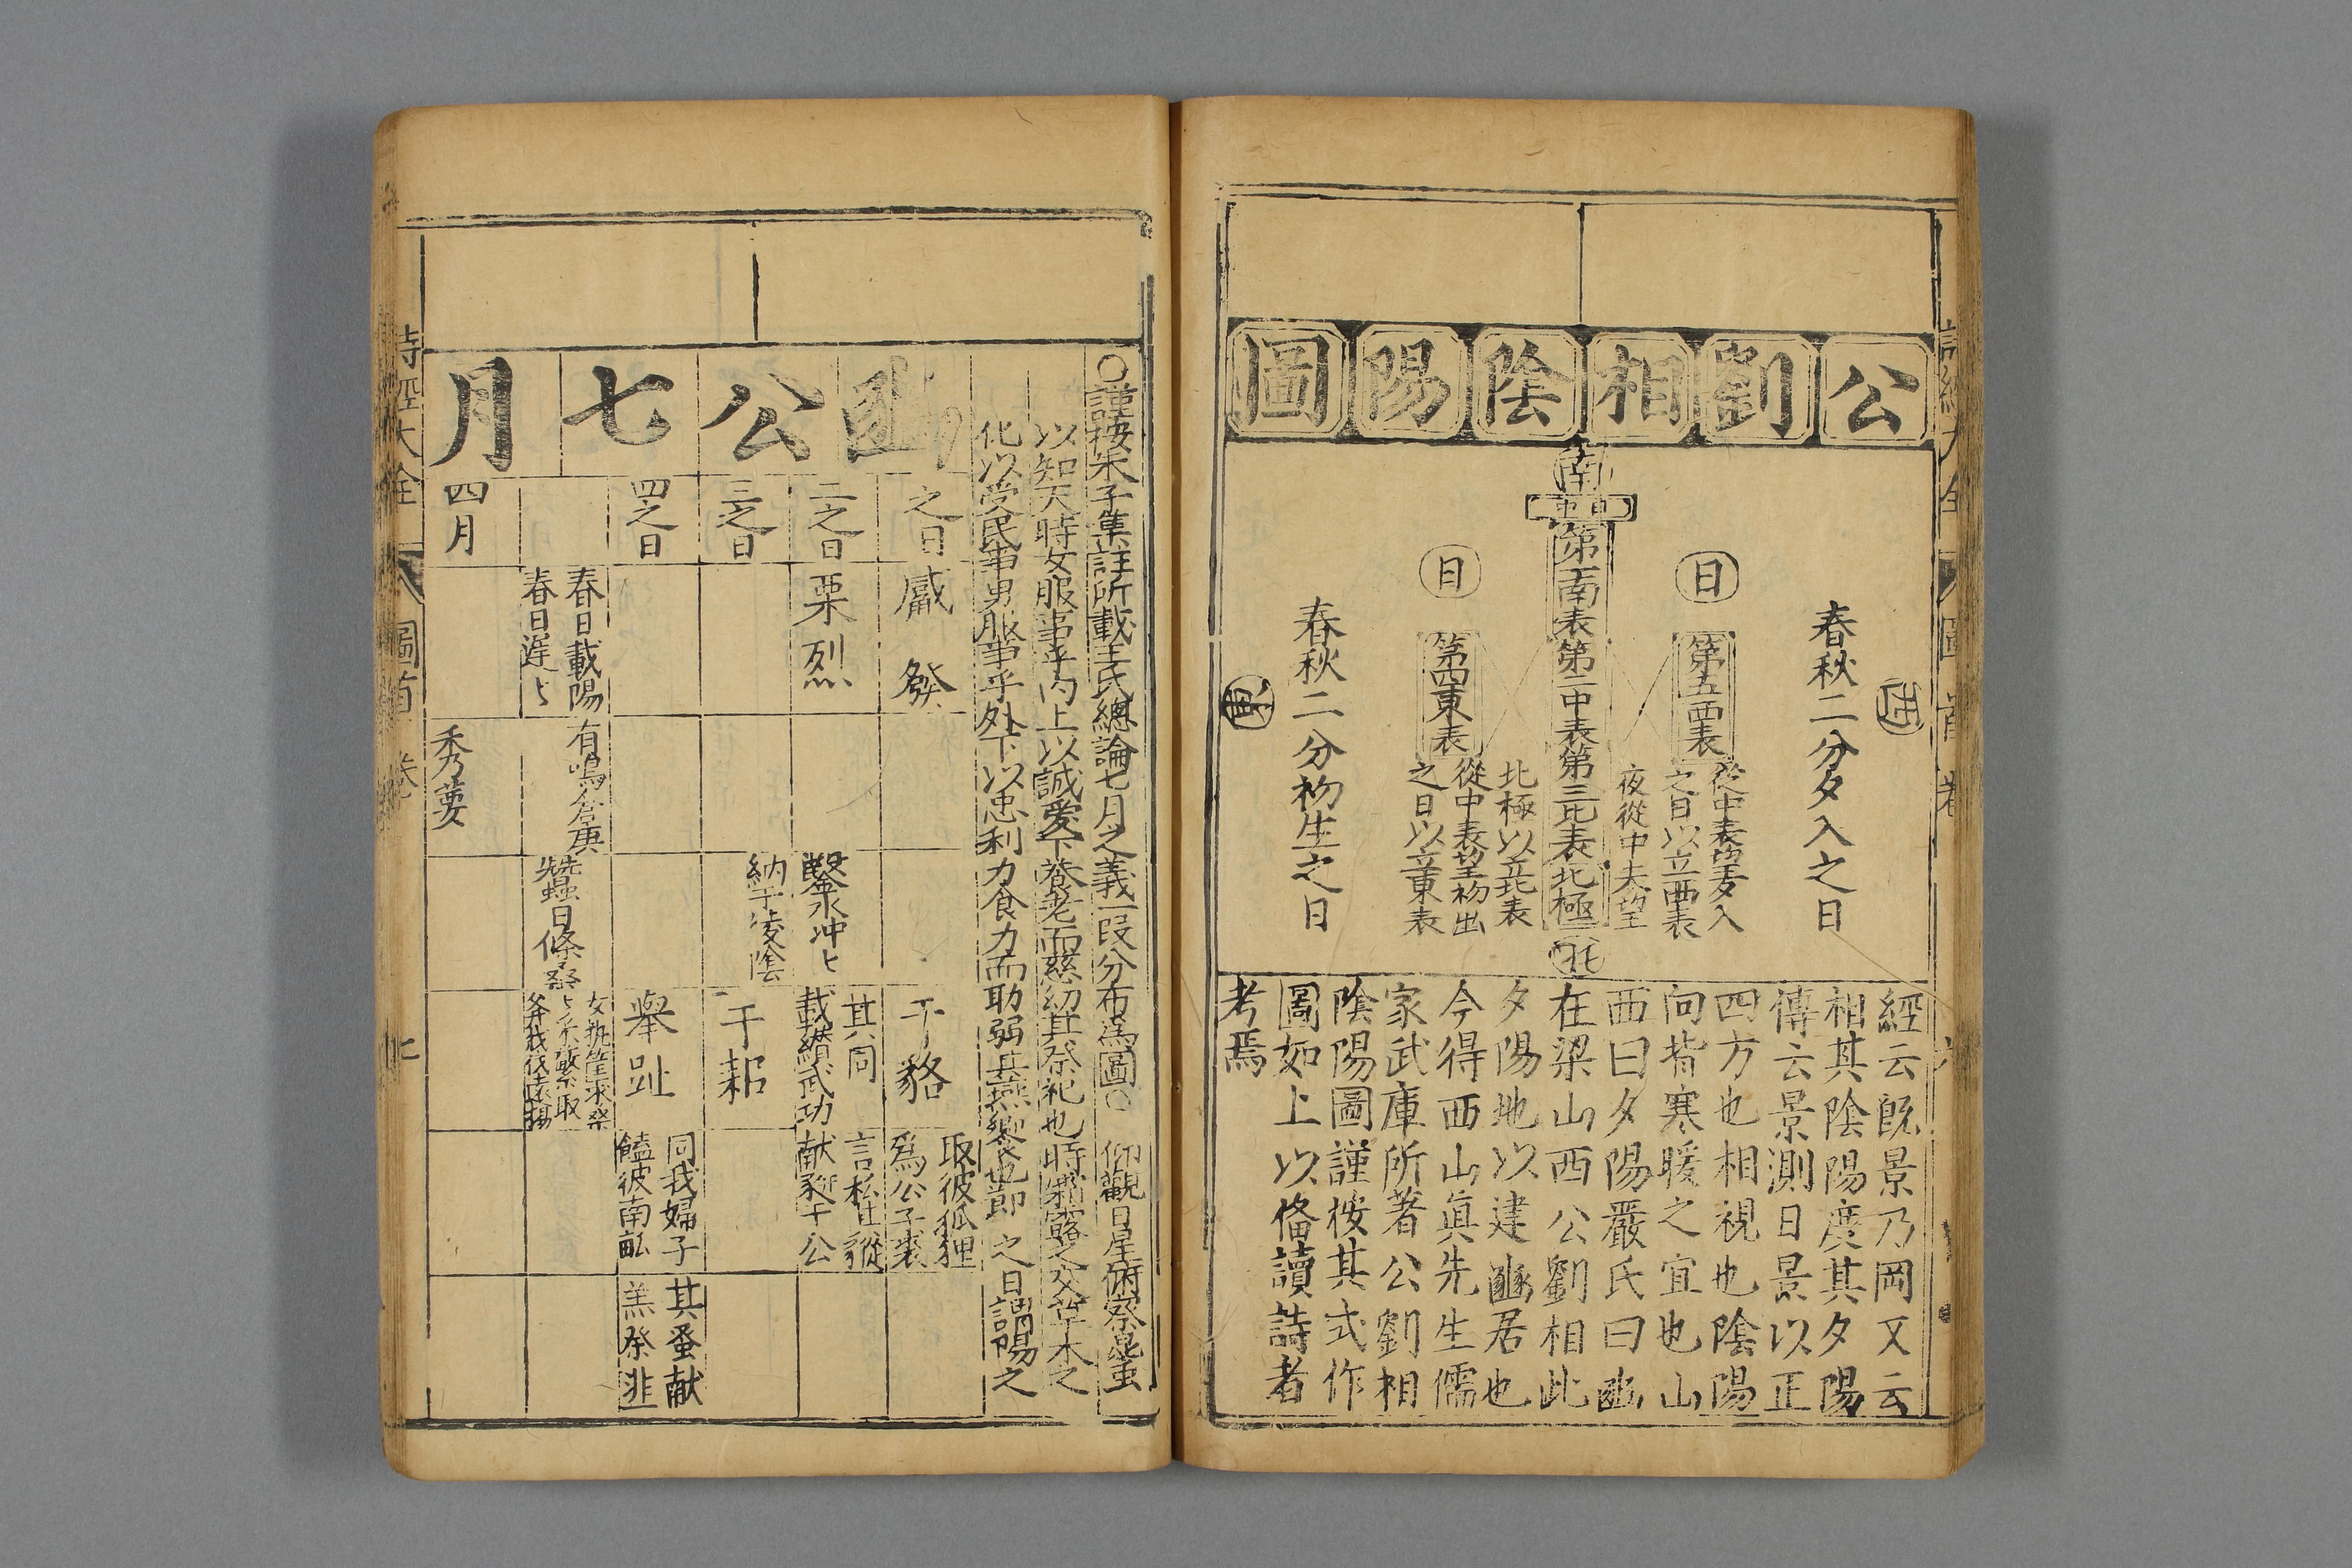 公劉相陰陽圖
南
第一南表第二中表第三北表北極
北
日
第五西表
從中表望夕入
之日以立西表
夜從中表望
北極以立北表
日
第四東表
從中表望初出
之日以立東表
春秋二分夕入之日
西
春秋二分初生之日
東
經云既景乃岡又云
相其陰陽度其夕陽
傳云景測日景以正
四方也相視也陰陽
向背寒暖之宜也山
西曰夕陽嚴氏曰豳
在梁山西公劉相此
夕陽地以建豳君也
今得西山眞先生儒
家武庫所著公劉相
陰陽圖謹按其式作
圖如上以俻讀詩者
考焉
○謹按朱子集註所載王氏總論七月之義一段分布爲圖○仰觀日星俯察昆虫
以知天時女服事乎内上以誠愛下養老而慈幼其祭祀也時霜露之变草木之
化以受民事男服事乎外下以忠利力食力而助弱其燕饗也節之日謂陽之
豳公七月
之日
觱發
于貉
取彼狐狸
爲公子裘
二之日
栗烈
鑿氷冲〻
其同
載纘武功
言私其豵
献豣于公
三之日
納于凌陰
于耜
四之日
舉趾
同我婦子
饁彼南畝
其蚤献
羔祭韭
春日載陽
春日遲〻
有鳴倉庚
蠶月條桑
女執筐求桑
〻采蘩取
斧戕伐遠揚
四月
秀葽
詩經大全
圖首卷